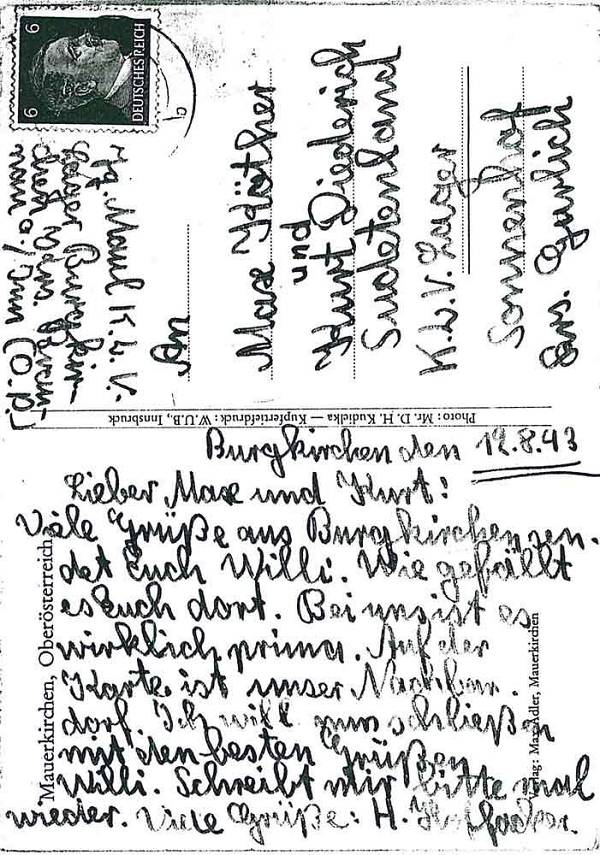 6 DEUTSCHES REICH 6
K.L.V.
Lager Burgkir-
chen
An
Max Köther
und
Kurt Diederich
Sudetenland
K.L.V. Lager
Sonnenhof
Photo: Mr. D. H. Kudielka — Kupfertiefdruck: W.U.B., Innsbruck
Burgkirchen den 12.8.43
Lieber Max und Kurt!
Viele Grüße aus Burgkirchen sen-
det Euch Willi. Wie gefällt
es Euch dort. Bei uns ist es
wirklich prima. Auf der
Karte ist unser Nachbar
dorf. Ich will nun schließen
mit den besten Grüßen
Willi. Schreibt mir bitte mal
wieder. Viele Grüße: H.
Mauerkirchen, Oberösterreich
Verlag: Max Adler, Mauerkirchen